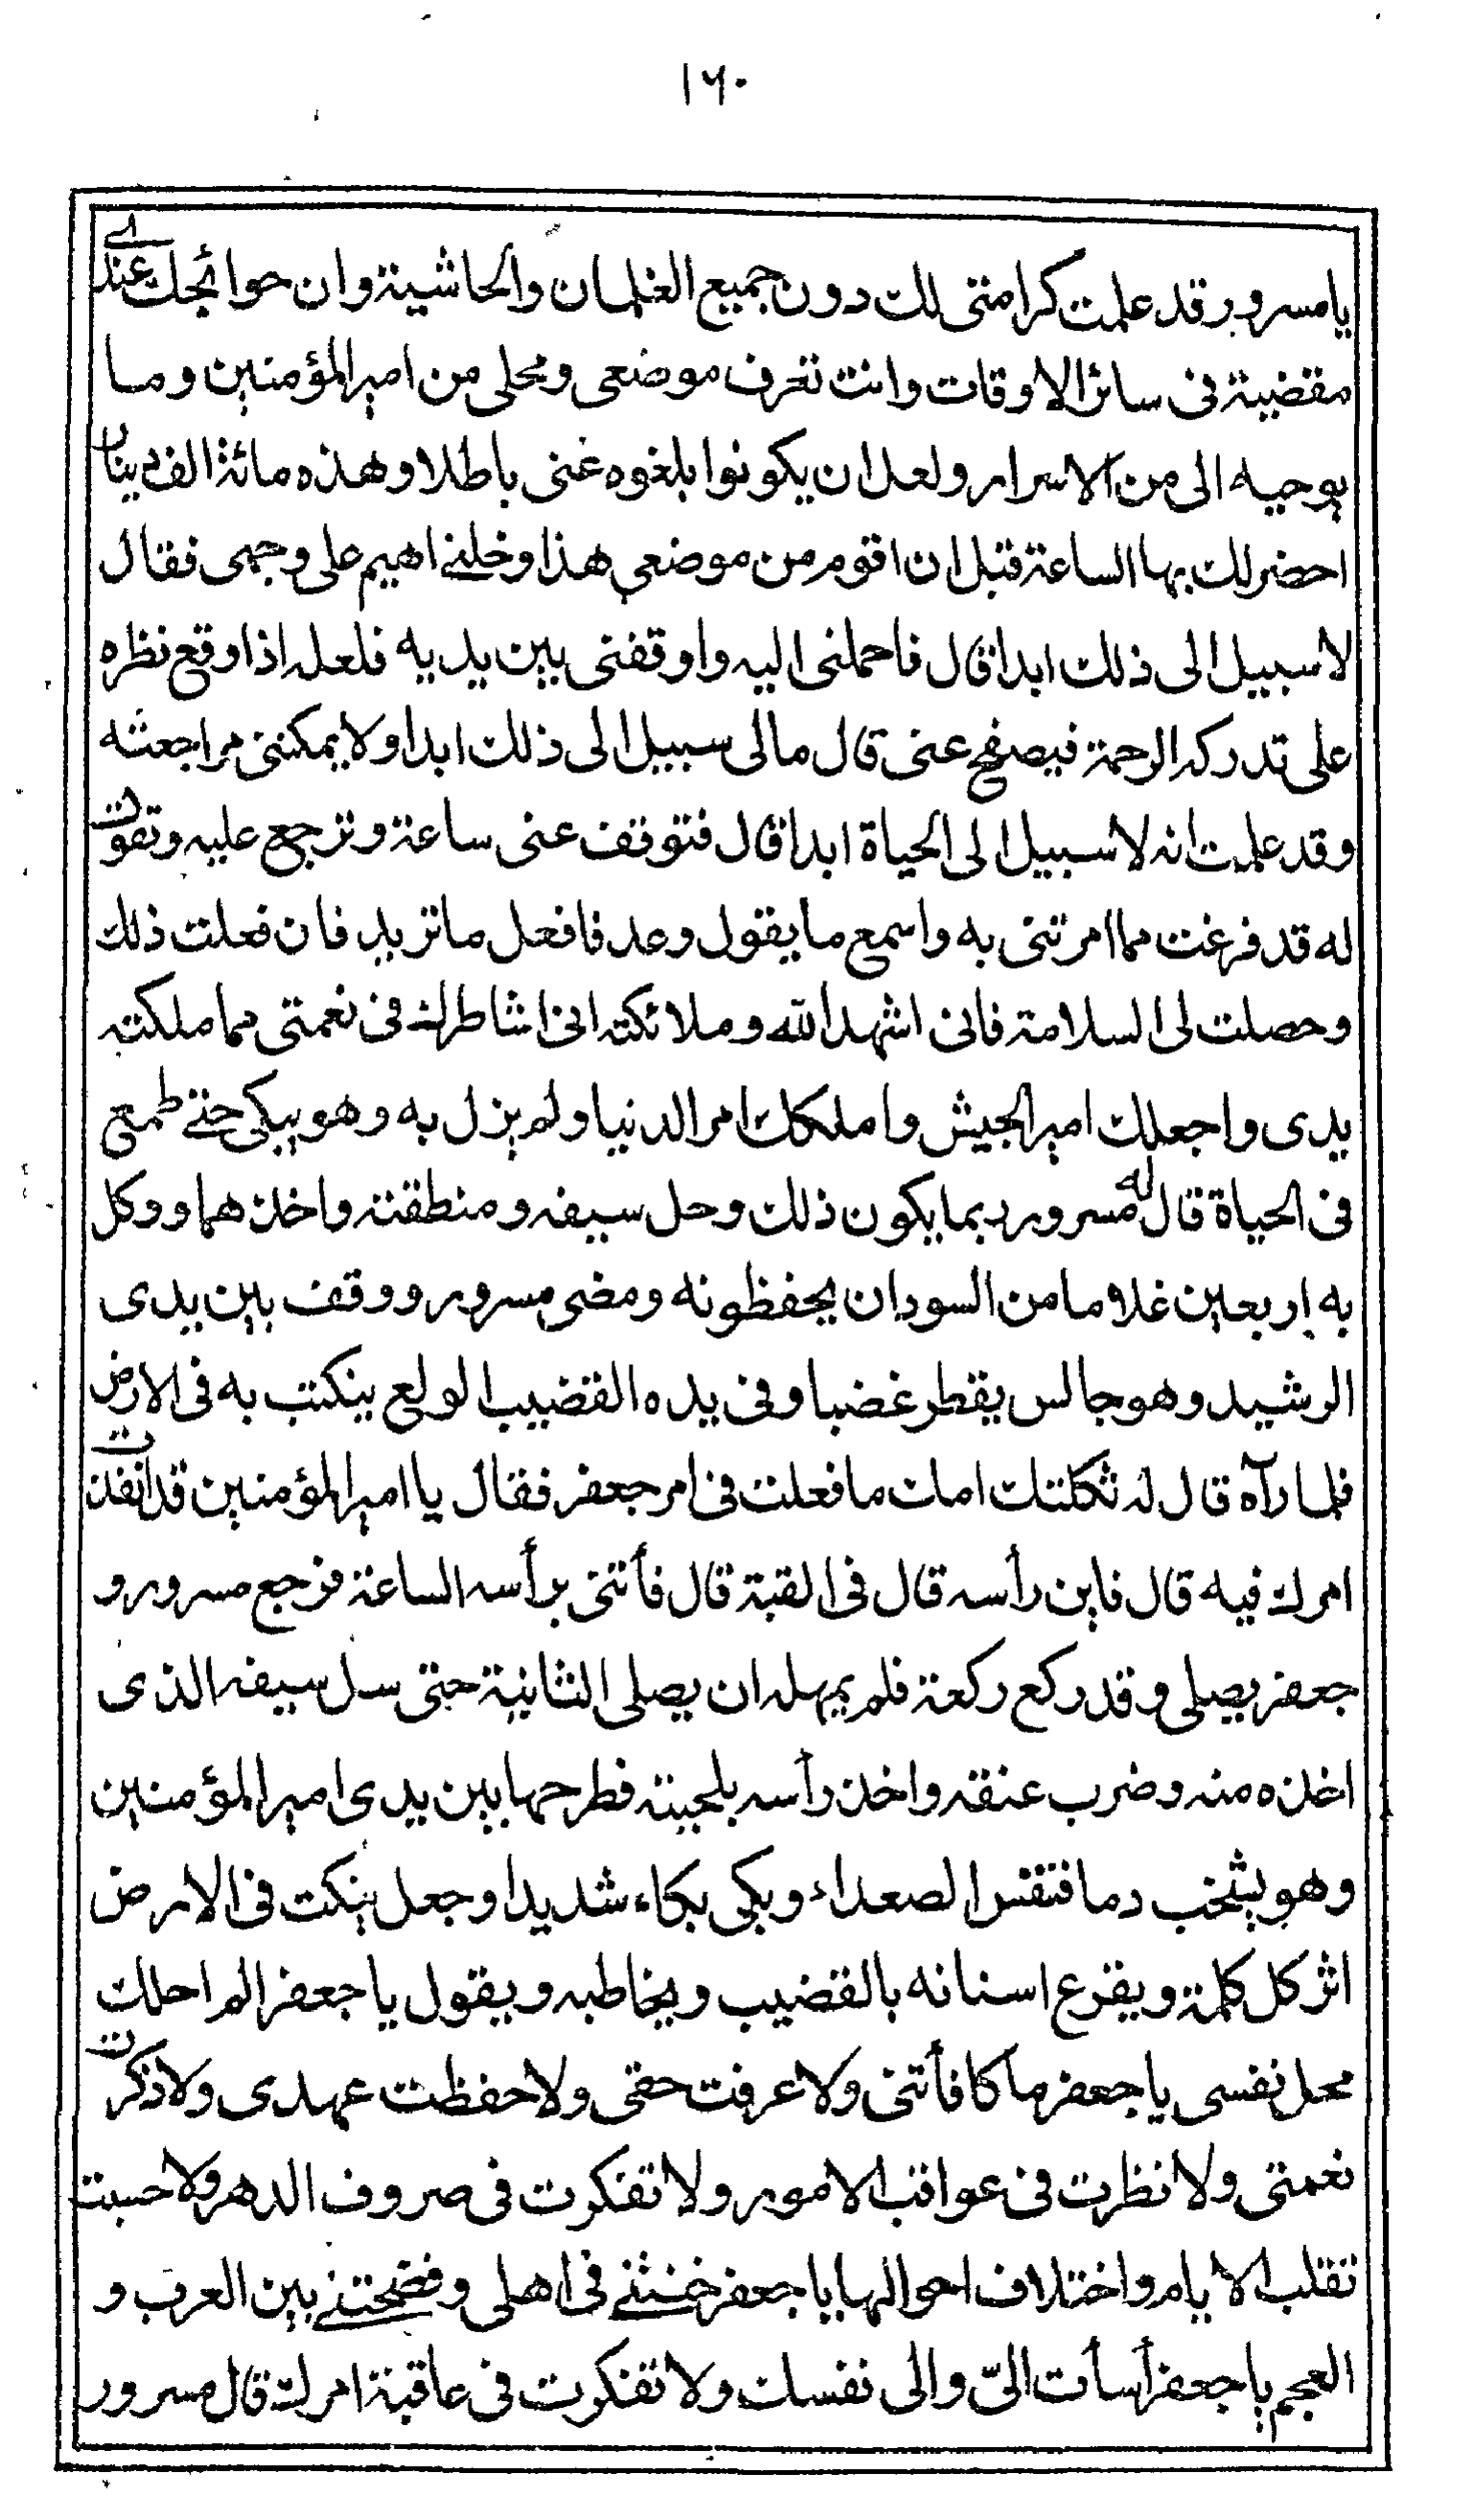 ١٦٠
يا مسرور قد علمت كرامتى لك دون جميع الغلمان والحاشية وان حوائجك عندى
مقضية فى سائر الاوقات وانت تعرف موضعى ومحلى من امير المؤمنين وما
يوحيه الى من الاسرار ولعل ان يكونوا بلغوه عنى باطلا وهذه مائة الف دينار
احضر لك بها الساعة قبل ان اقوم من موضعى هذا وخلنى اهيم على وجهى فقال
لا سبيل الى ذلك ابدا قال فاحملنى اليه واوقفنى بين يديه فلعله اذا وقع نظره
على تدركه الرحمة فيصفح عنى قال مالى سبيل الى ذلك ابدا ولا يمكننى مراجعته
وقد علمت انه لا سبيل الى الحياة ابدا قال فتوقف عنى ساعة وترجع عليه وتقول
له قد فرغت مما امرتنى به واسمع ما يقول وعد فافعل ما تريد فان فعلت ذلك
وحصلت لى السلامة فانى اشهد الله وملائكته انى اشاطرك فى نعمتى مما ملكته
يدى واجعلك امير الجيش واملكك امر الدنيا ولم يزل به وهو يبكى حتى طمع
فى الحياة قال له مسرور ربما يكون ذلك وحل سيفه ومنطقته واخذهما ووكل
به اربعين غلاما من السودان يحفظونه ومضى مسرور ووقف بين يدى
الرشيد وهو جالس يقطر غضبا وفى يده القضيب الولع ينكت به فى الارض
فلما رآه قال له ثكلتك امك ما فعلت فى امر جعفر فقال يا امير المؤمنين قد انفذت
امرك فيه قال فاين رأسه قال فى القبة قال فأتنى برأسه الساعة فرجع مسرور و
جعفر يصلى وقد ركع ركعة فلم يمهله ان يصلى الثانية حتى سل سيفه الذى
اخذه منه وضرب عنقه واخذ رأسه بلحيته فطرحها بين يدى امير المؤمنين
وهو يشخب دما فتنفس الصعداء وبكى بكاء شديدا وجعل ينكت فى الارض
اثر كل كلمة ويقرع اسنانه بالقضيب ويخاطبه ويقول يا جعفر الم احلك
محل نفسى يا جعفر ما كافأتنى ولا عرفت حقى ولا حفظت عهدى ولا ذكرت
نعمتى ولا نظرت فى عواقب الامور ولا تفكرت فى صروف الدهر ولا حسبت
تقلب الايام واختلاف احوالها يا جعفر خنتنى فى اهلى وفضحتنى بين العرب و
العجم يا جعفر أسأت الىّ والى نفسك ولا تفكرت فى عاقبة امرك قال مسرور